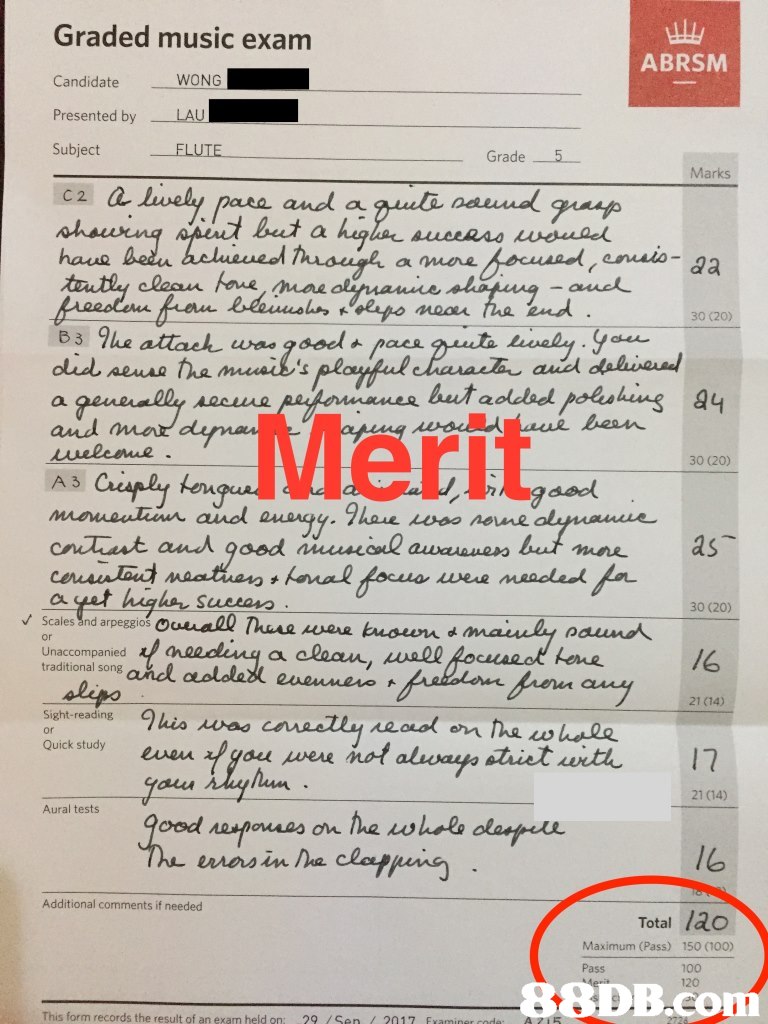 Graded music exam
ABRSM
Candidate WONG
Presented by LAU
Subject FLUTE
Grade 5
Marks
C2 A lively pace and a quite sound grasp
showing spirit but a higher success would
have been achieved through a more focused, consis-
tently clean tone, more dynamic shaping - and
freedom from blemishes + slips near the end.
22
30 (20)
B3 The attack was good & pace quite lively. You
did sense the music's playful character and delivered
a generally secure performance but added polishing
and more
would have been
welcome.
24
30 (20)
Merit
A3 Crisply
good
momentum and energy. There was some dynamic
contrast and good musical awareness but more
consistent neatness + tonal focus were needed for
a yet higher success.
25
30 (20)
✓ Scales and arpeggios
or
Unaccompanied
traditional song
Overall these were known & mainly sound
if needing a clean, well focused tone
and added evenness + freedom from any
slips.
16
21 (14)
Sight-reading
or
Quick study
This was correctly read on the whole
even if you were not always strict with
your rhythm.
17
21 (14)
Aural tests
Good responses on the whole despite
the errors in the clapping.
16
Additional comments if needed
Total 120
Maximum (Pass) 150 (100)
Pass 100
Merit 120
88DB.com
This form records the result of an exam held on: 29 / Sep / 2017 Examiner code: